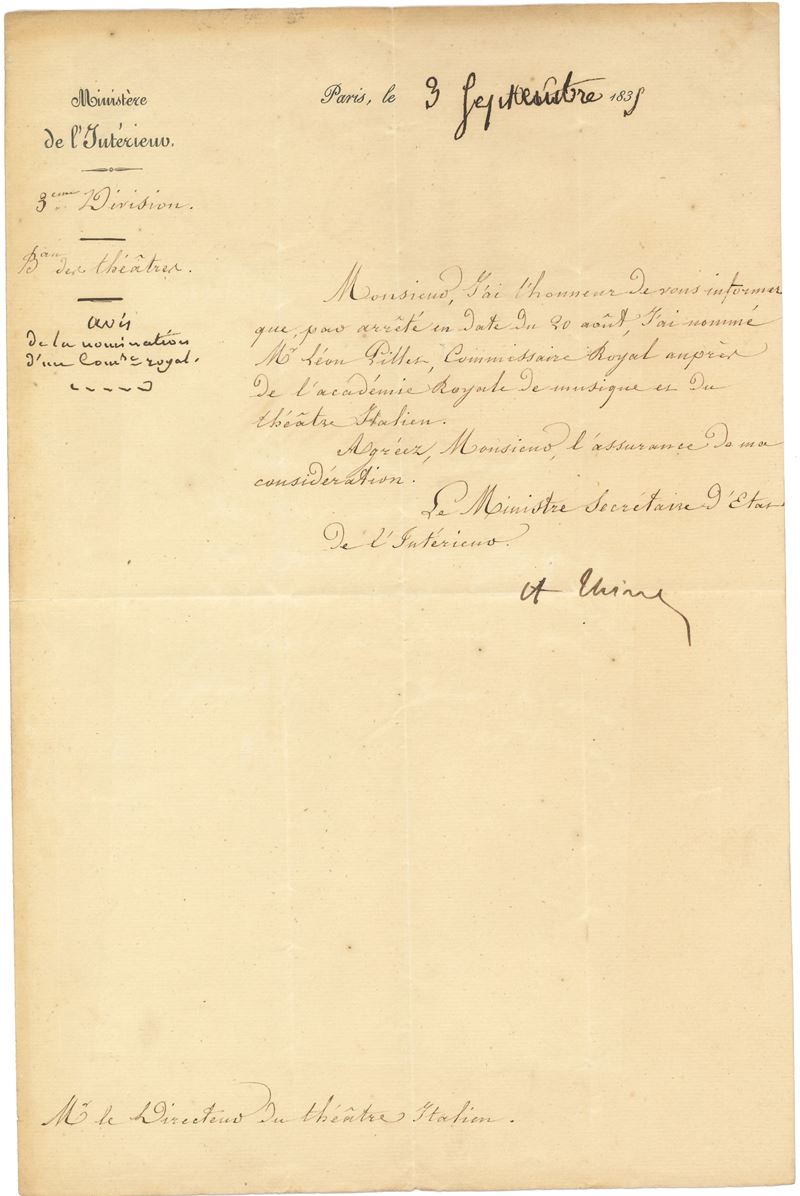 Ministère
de l'Intérieur.
3eme Division.
Bau des théâtres.
avis
de la nomination
d'un Comre royal.
Paris, le 3 Septembre 1835
Monsieur, J'ai l'honneur de vous informer
que, par arrêté en date du 20 août, J'ai nommé
Mr Léon Pillet, Commissaire Royal auprès
de l'académie Royale de musique et du
théâtre Italien.
Agréez, Monsieur, l'assurance de ma
considération.
Le Ministre Secrétaire d'Etat
de l'Intérieur.
A Thiers
Mr le Directeur du théâtre Italien.